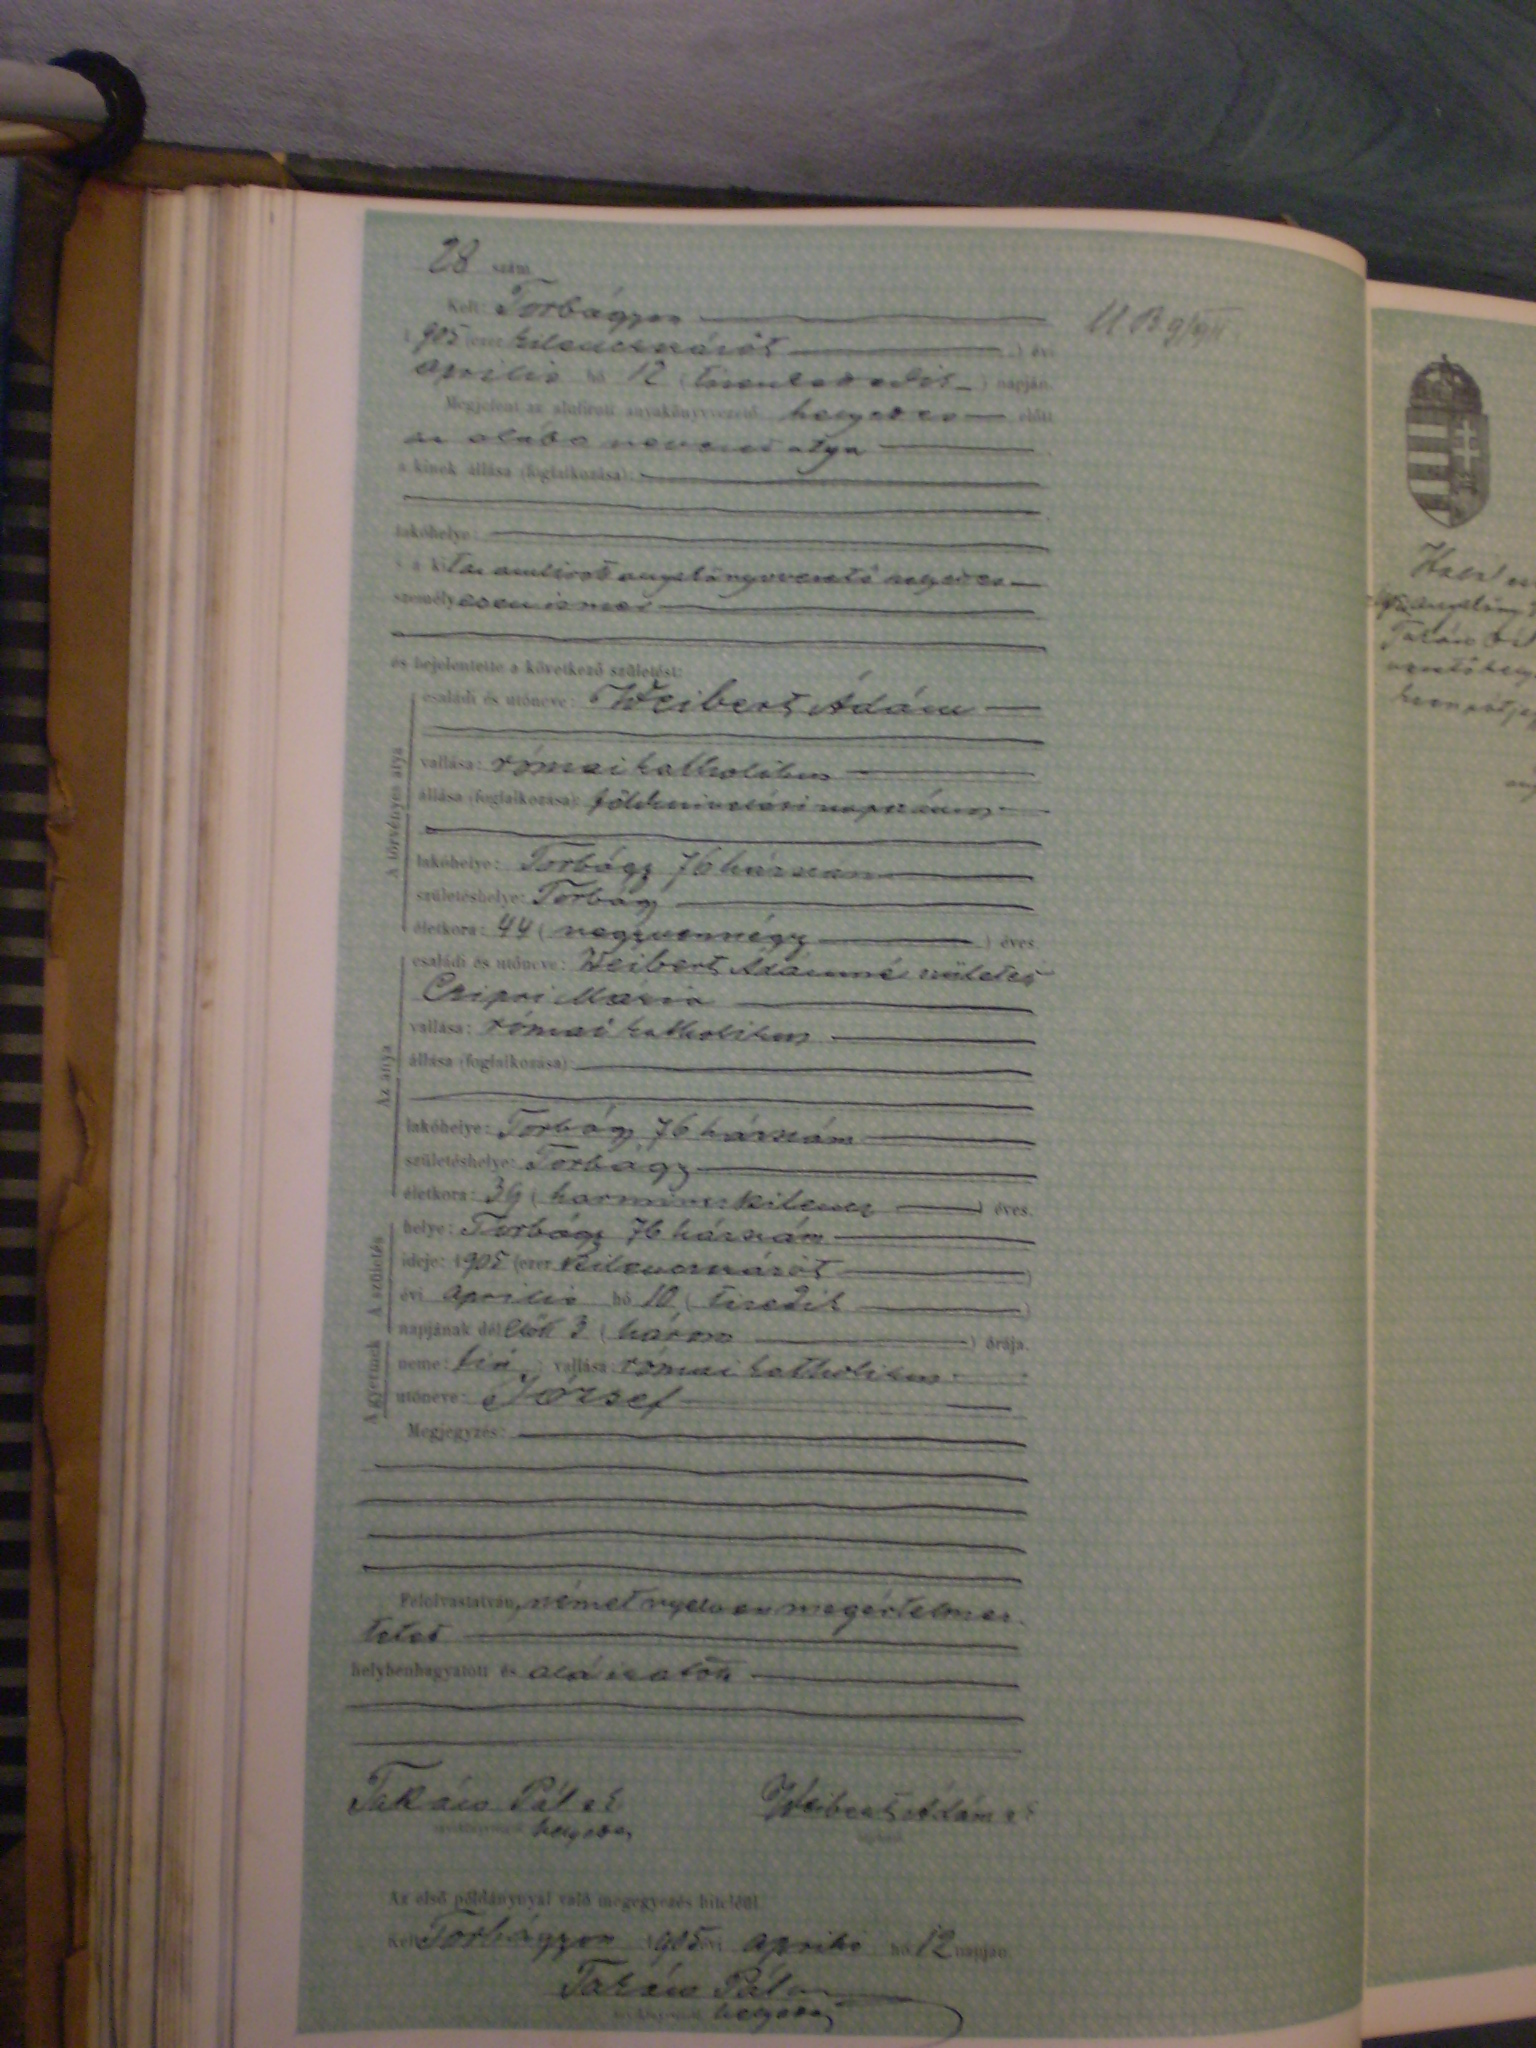 28 szám
Kelt: Torbágyon
1905 (ezer kilencszázöt) évi
április hó 12 (tizenkettedik) napján.
Megjelent az alulirott anyakönyvvezető helyettes előtt
az alább nevezett atya
a kinek állása (foglalkozása):
lakóhelye:
s a kit az alulirott anyakönyvvezető helyettes
személyesen ismer
és bejelentette a következő születést:
A törvényes atya
családi és utóneve: Weibert Ádám
vallása: római katholikus
állása (foglalkozása): földmivelési napszámos
lakóhelye: Torbágy 76 házszám
születéshelye: Torbágy
életkora: 44 (negyvennégy) éves.
Az anya
családi és utóneve: Weibert Ádámné született
Czipri Mária
vallása: római katholikus
állása (foglalkozása):
lakóhelye: Torbágy 76 házszám
születéshelye: Torbágy
életkora: 39 (harminczkilencz) éves.
A születés
helye: Torbágy 76 házszám
ideje: 1905 (ezer kilenczszázöt)
évi április hó 10 (tizedik)
napjának délelőtt 3 (három) órája.
A gyermek
neme: fiú; vallása: római katholikus
utóneve: József
Megjegyzés:
Felolvastatván, német nyelven megértelmez-
tetett
helybenhagyatott és aláiratott
Takács Pál sk Weibert Ádám sk
helyettes
Az első példánynyal való megegyezés hiteléül.
Kelt Torbágyon 1905 évi április hó 12 napján
Takács Pál
helyettes